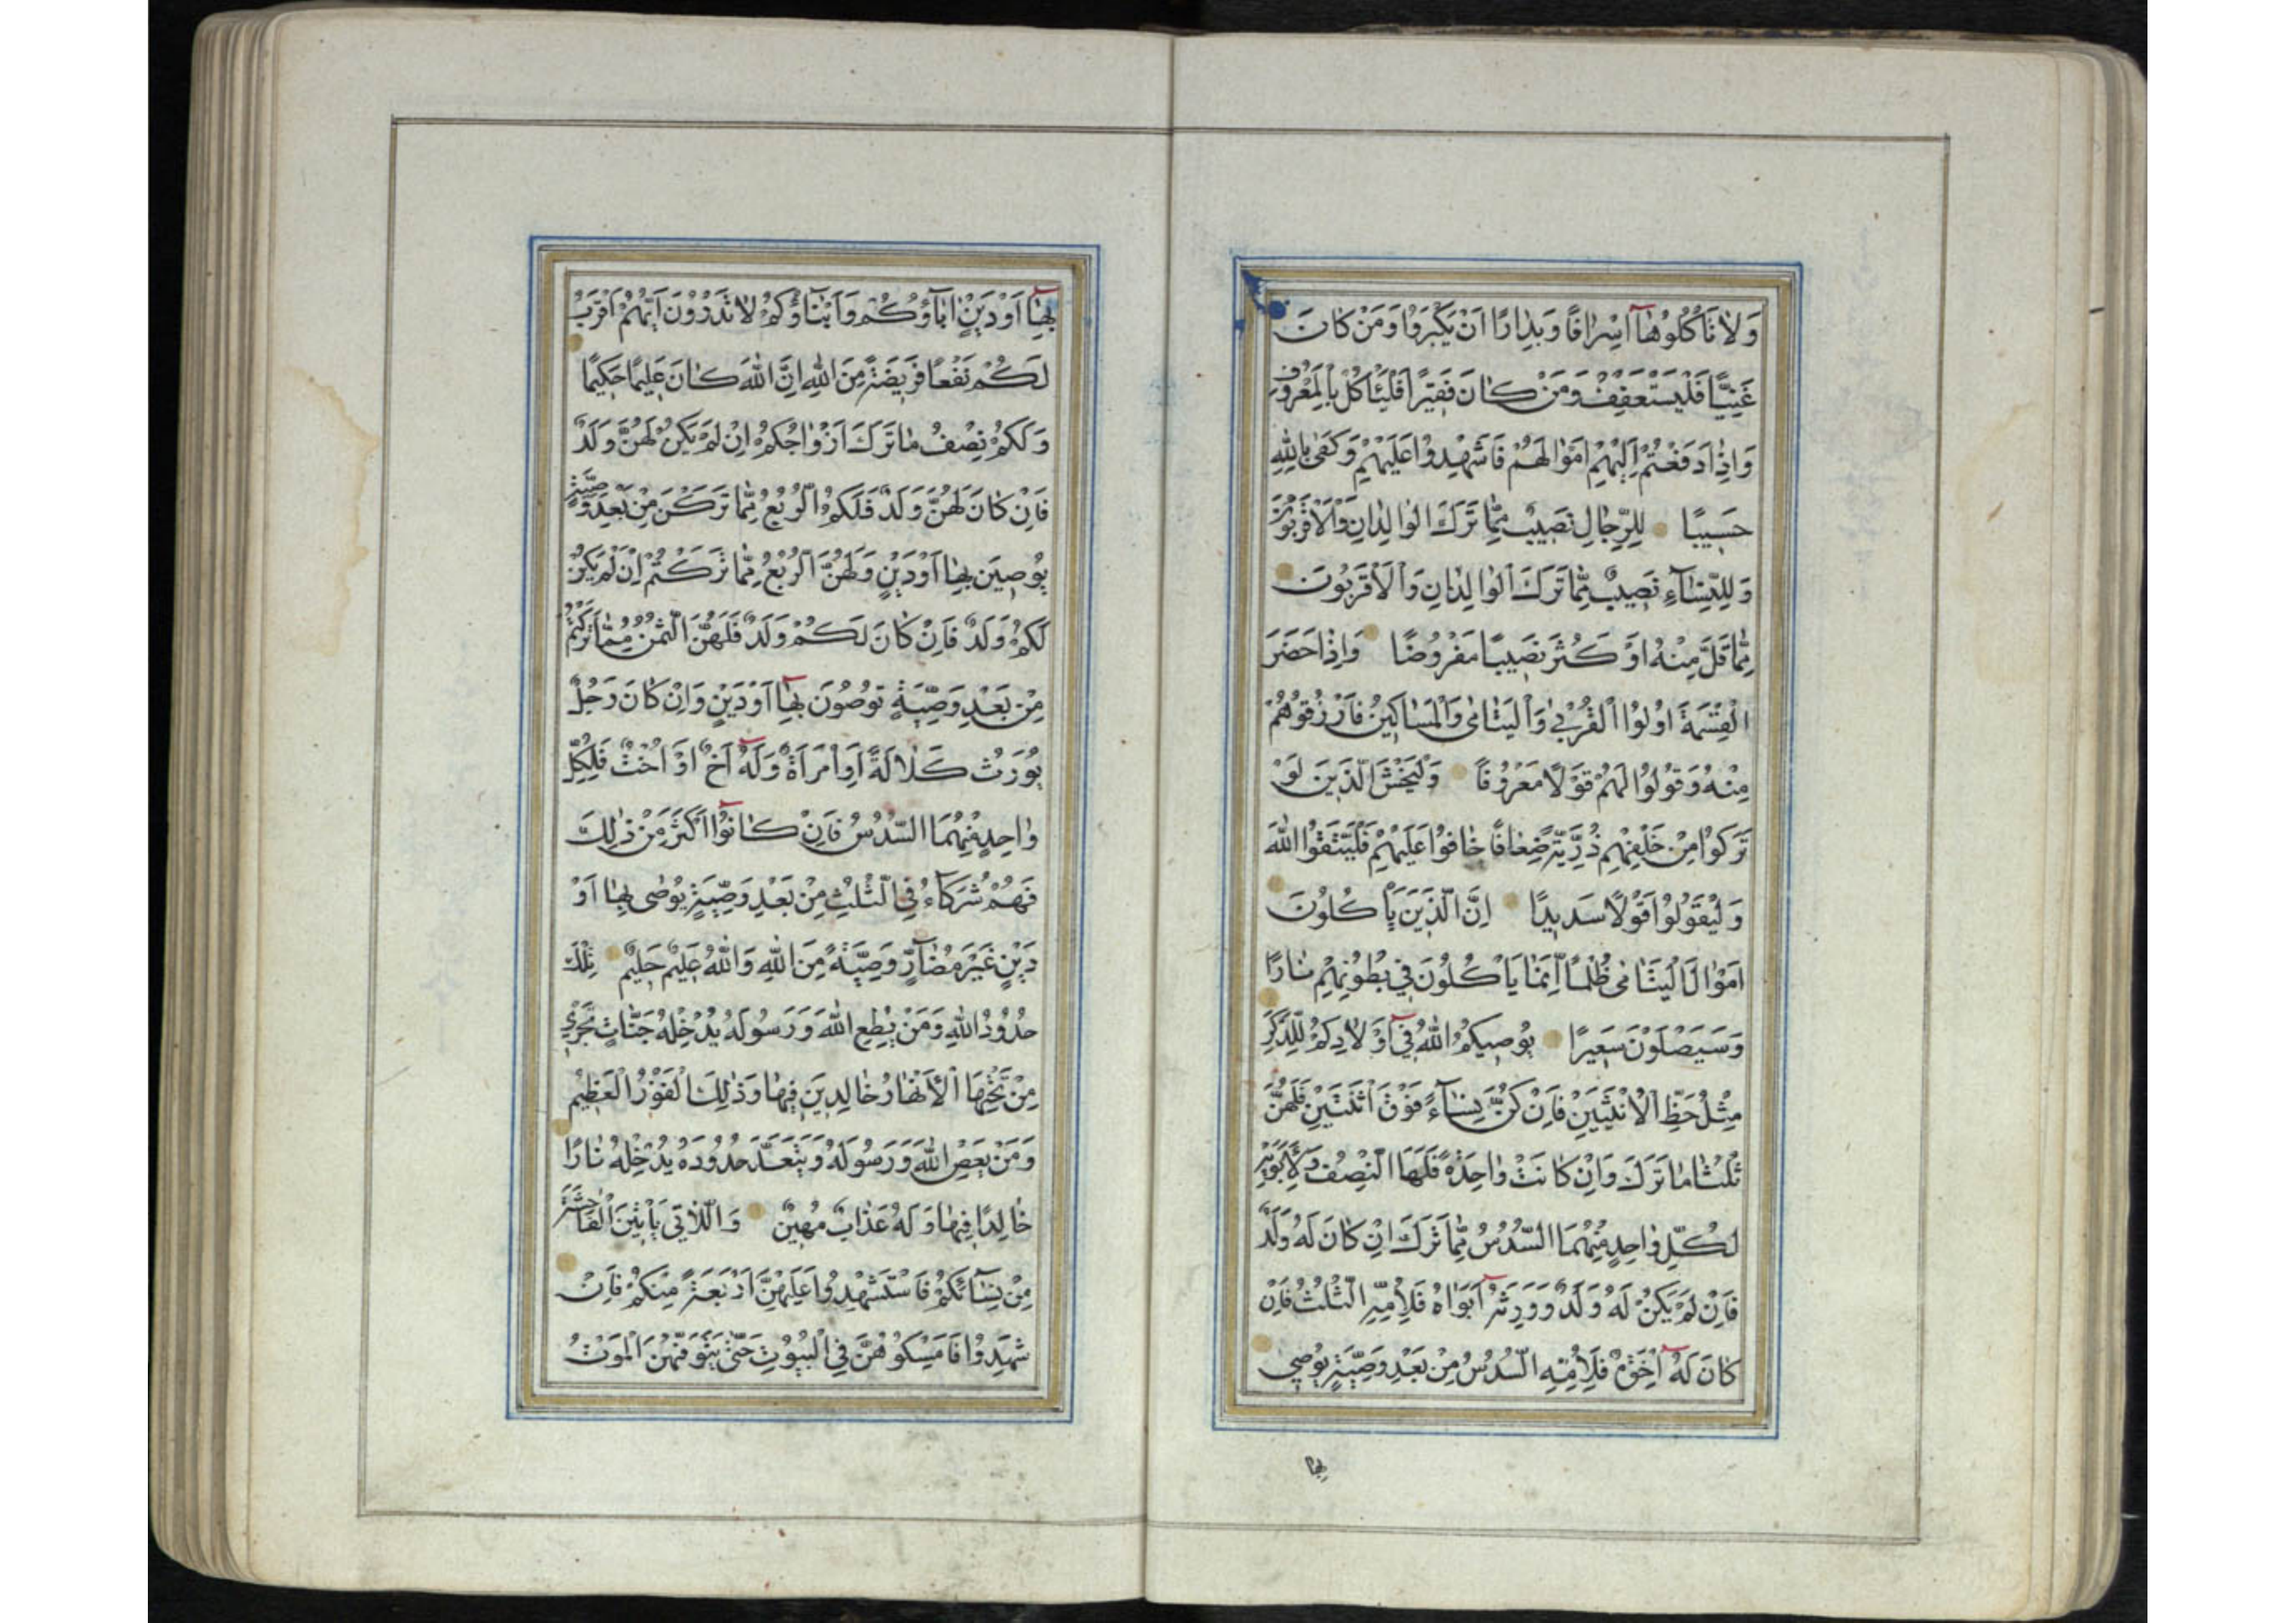 وَلَا تَأْكُلُوهَا اِسْرَافًا وَبِدَارًا اَنْ يَكْبَرُوا وَمَنْ كَانَ
غَنِيًّا فَلْيَسْتَعْفِفْ وَمَنْ كَانَ فَقِيرًا فَلْيَأْكُلْ بِالْمَعْرُوفِ
وَاِذَا دَفَعْتُمْ اِلَيْهِمْ اَمْوَالَهُمْ فَاَشْهِدُوا عَلَيْهِمْ وَكَفٰى بِاللّٰهِ
حَسِيبًا لِلرِّجَالِ نَصِيبٌ مِمَّا تَرَكَ الْوَالِدَانِ وَالْاَقْرَبُونَ
وَلِلنِّسَآءِ نَصِيبٌ مِمَّا تَرَكَ الْوَالِدَانِ وَالْاَقْرَبُونَ
مِمَّا قَلَّ مِنْهُ اَوْ كَثُرَ نَصِيبًا مَفْرُوضًا وَاِذَا حَضَرَ
الْقِسْمَةَ اُولُوا الْقُرْبٰى وَالْيَتَامٰى وَالْمَسَاكِينُ فَارْزُقُوهُمْ
مِنْهُ وَقُولُوا لَهُمْ قَوْلًا مَعْرُوفًا وَلْيَخْشَ الَّذِينَ لَوْ
تَرَكُوا مِنْ خَلْفِهِمْ ذُرِّيَّةً ضِعَافًا خَافُوا عَلَيْهِمْ فَلْيَتَّقُوا اللّٰهَ
وَلْيَقُولُوا قَوْلًا سَدِيدًا اِنَّ الَّذِينَ يَأْكُلُونَ
اَمْوَالَ الْيَتَامٰى ظُلْمًا اِنَّمَا يَأْكُلُونَ فِي بُطُونِهِمْ نَارًا
وَسَيَصْلَوْنَ سَعِيرًا يُوصِيكُمُ اللّٰهُ فِي اَوْلَادِكُمْ لِلذَّكَرِ
مِثْلُ حَظِّ الْاُنْثَيَيْنِ فَاِنْ كُنَّ نِسَآءً فَوْقَ اثْنَتَيْنِ فَلَهُنَّ
ثُلُثَا مَا تَرَكَ وَاِنْ كَانَتْ وَاحِدَةً فَلَهَا النِّصْفُ وَلِاَبَوَيْهِ
لِكُلِّ وَاحِدٍ مِنْهُمَا السُّدُسُ مِمَّا تَرَكَ اِنْ كَانَ لَهُ وَلَدٌ
فَاِنْ لَمْ يَكُنْ لَهُ وَلَدٌ وَوَرِثَهُ اَبَوَاهُ فَلِاُمِّهِ الثُّلُثُ فَاِنْ
كَانَ لَهُ اِخْوَةٌ فَلِاُمِّهِ السُّدُسُ مِنْ بَعْدِ وَصِيَّةٍ يُوصِي
بِهَا
بِهَا اَوْ دَيْنٍ اٰبَاؤُكُمْ وَاَبْنَاؤُكُمْ لَا تَدْرُونَ اَيُّهُمْ اَقْرَبُ
لَكُمْ نَفْعًا فَرِيضَةً مِنَ اللّٰهِ اِنَّ اللّٰهَ كَانَ عَلِيمًا حَكِيمًا
وَلَكُمْ نِصْفُ مَا تَرَكَ اَزْوَاجُكُمْ اِنْ لَمْ يَكُنْ لَهُنَّ وَلَدٌ
فَاِنْ كَانَ لَهُنَّ وَلَدٌ فَلَكُمُ الرُّبُعُ مِمَّا تَرَكْنَ مِنْ بَعْدِ وَصِيَّةٍ
يُوصِينَ بِهَا اَوْ دَيْنٍ وَلَهُنَّ الرُّبُعُ مِمَّا تَرَكْتُمْ اِنْ لَمْ يَكُنْ
لَكُمْ وَلَدٌ فَاِنْ كَانَ لَكُمْ وَلَدٌ فَلَهُنَّ الثُّمُنُ مِمَّا تَرَكْتُمْ
مِنْ بَعْدِ وَصِيَّةٍ تُوصُونَ بِهَا اَوْ دَيْنٍ وَاِنْ كَانَ رَجُلٌ
يُورَثُ كَلَالَةً اَوِ امْرَاَةٌ وَلَهُ اَخٌ اَوْ اُخْتٌ فَلِكُلِّ
وَاحِدٍ مِنْهُمَا السُّدُسُ فَاِنْ كَانُوا اَكْثَرَ مِنْ ذٰلِكَ
فَهُمْ شُرَكَآءُ فِي الثُّلُثِ مِنْ بَعْدِ وَصِيَّةٍ يُوصٰى بِهَا اَوْ
دَيْنٍ غَيْرَ مُضَآرٍّ وَصِيَّةً مِنَ اللّٰهِ وَاللّٰهُ عَلِيمٌ حَلِيمٌ تِلْكَ
حُدُودُ اللّٰهِ وَمَنْ يُطِعِ اللّٰهَ وَرَسُولَهُ يُدْخِلْهُ جَنَّاتٍ تَجْرِي
مِنْ تَحْتِهَا الْاَنْهَارُ خَالِدِينَ فِيهَا وَذٰلِكَ الْفَوْزُ الْعَظِيمُ
وَمَنْ يَعْصِ اللّٰهَ وَرَسُولَهُ وَيَتَعَدَّ حُدُودَهُ يُدْخِلْهُ نَارًا
خَالِدًا فِيهَا وَلَهُ عَذَابٌ مُهِينٌ وَاللَّاتِي يَأْتِينَ الْفَاحِشَةَ
مِنْ نِسَآئِكُمْ فَاسْتَشْهِدُوا عَلَيْهِنَّ اَرْبَعَةً مِنْكُمْ فَاِنْ
شَهِدُوا فَاَمْسِكُوهُنَّ فِي الْبُيُوتِ حَتّٰى يَتَوَفّٰيهُنَّ الْمَوْتُ